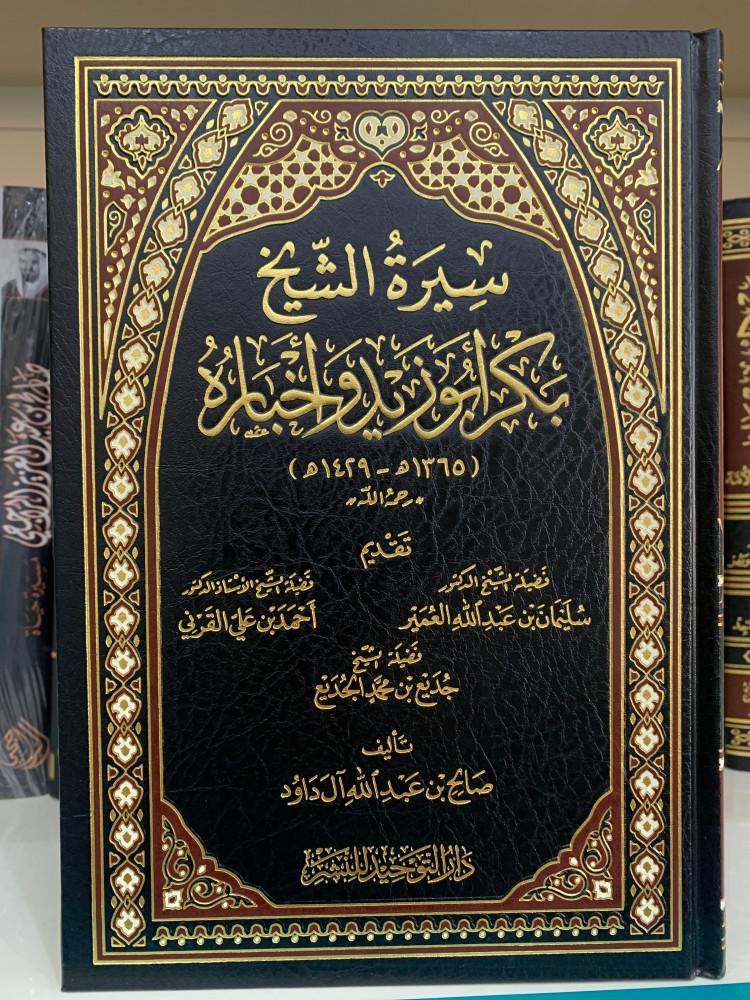 سِيرَةُ الشَّيْخِ
بَكْر أَبُو زَيْد وَأَخْبَارُهُ
(١٣٦٥هـ - ١٤٢٩هـ)
رحمه الله
تَقْدِيم
فَضِيلَة الشَّيْخ الدكتور
سُلَيْمَان بْن عَبْدِ اللهِ العُمَيْر
فَضِيلَة الشَّيْخ الأستاذ الدكتور
أَحْمَد بْن عَلِيّ القَرْنِي
فَضِيلَة الشَّيْخ
جُدَيْع بْن مُحَمَّد الجُدَيْع
تَأْلِيف
صَالِح بْن عَبْدِ اللهِ آل دَاوُد
دَارُ التَّوْحِيد لِلنَّشْر
مسيرة حياة